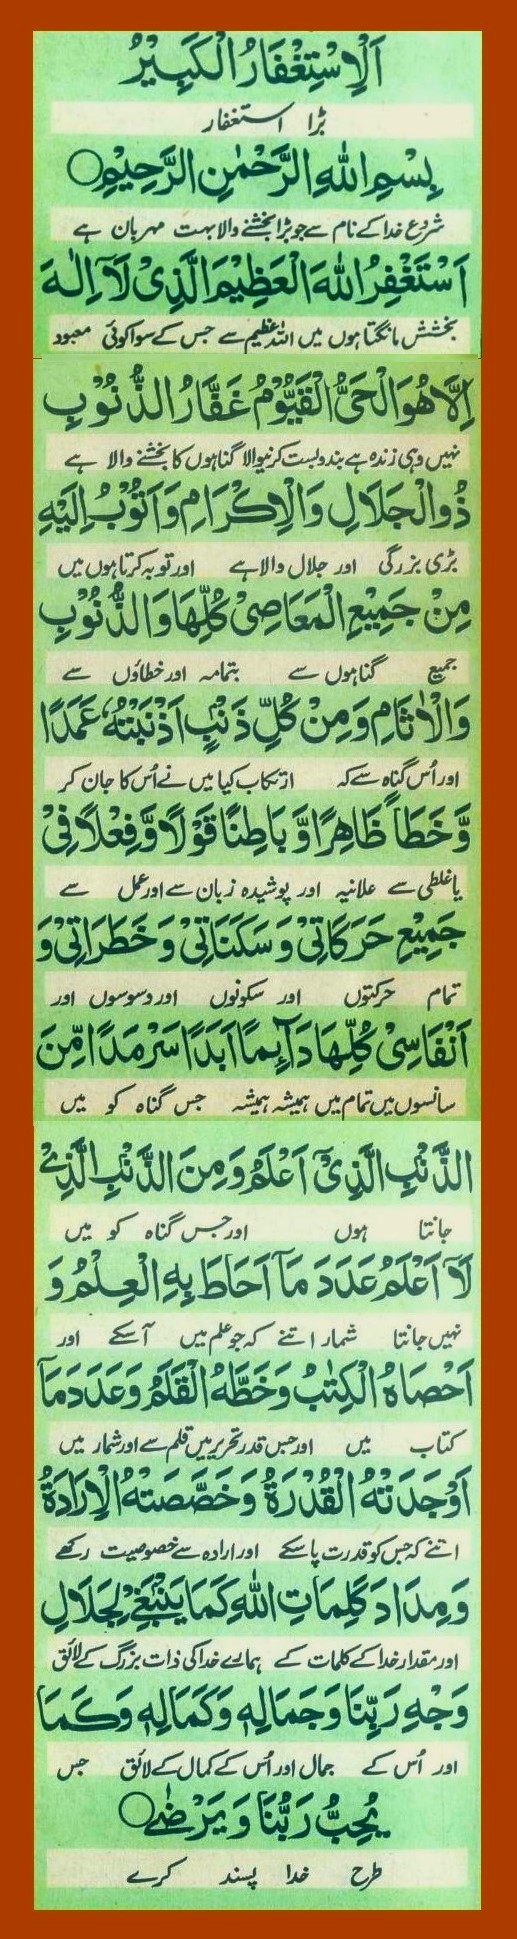 اَلْاِسْتِغْفَارُ الْكَبِيْرُ
بڑا استغفار
بِسْمِ اللهِ الرَّحْمٰنِ الرَّحِيْمِ○
شروع خدا کے نام سے جو بڑا بخشنے والا بہت مہربان ہے
اَسْتَغْفِرُ اللهَ الْعَظِيْمَ الَّذِىْ لَآ اِلٰهَ
بخشش مانگتا ہوں میں اللہ عظیم سے جس کے سوا کوئی معبود
اِلَّا هُوَ الْحَىُّ الْقَيُّوْمُ غَفَّارُ الذُّنُوْبِ
نہیں وہی زندہ ہے بندوبست کرنیوالا گناہوں کا بخشنے والا ہے
ذُوالْجَلَالِ وَالْاِكْرَامِ وَاَتُوْبُ اِلَيْهِ
بڑی بزرگی اور جلال والا ہے اور توبہ کرتا ہوں میں
مِنْ جَمِيْعِ الْمَعَاصِىْ كُلِّهَا وَالذُّنُوْبِ
جمیع گناہوں سے بتمامہ اور خطاؤں سے
وَالْاٰثَامِ وَمِنْ كُلِّ ذَنْبٍ اَذْنَبْتُهٗ عَمَدًا
اور اُس گناہ سے کہ ارتکاب کیا میں نے اُس کا جان کر
وَّخَطَاً ظَاهِرًا وَّبَاطِنًا قَوْلًا وَّفِعْلًا فِىْ
یا غلطی سے علانیہ اور پوشیدہ زبان سے اور عمل سے
جَمِيْعِ حَرَكَاتِىْ وَسَكَنَاتِىْ وَخَطَرَاتِىْ وَ
تمام حرکتوں اور سکونوں اور وسوسوں اور
اَنْفَاسِىْ كُلِّهَا دَآئِمًا اَبَدًا سَرْمَدًا مِّنَ
سانسوں میں تمام میں ہمیشہ ہمیشہ جس گناہ کو میں
الذَّنْبِ الَّذِىْٓ اَعْلَمُ وَمِنَ الذَّنْبِ الَّذِىْ
جانتا ہوں اور جس گناہ کو میں
لَآ اَعْلَمُ عَدَدَ مَآ اَحَاطَ بِهِ الْعِلْمُ وَ
نہیں جانتا شمار اتنے کہ جو علم میں آسکے اور
اَحْصَاهُ الْكِتٰبُ وَخَطَّهُ الْقَلَمُ وَعَدَدَ مَآ
کتاب میں اور جس قدر تحریر میں قلم سے اور شمار میں
اَوْجَدَتْهُ الْقُدْرَةُ وَخَصَّصَتْهُ الْاِرَادَةُ
اتنے کہ جس کو قدرت پاسکے اور ارادہ سے خصوصیت رکھے
وَمِدَادَ كَلِمَاتِ اللهِ كَمَا يَنْبَغِىْ لِجَلَالِ
اور مقدار خدا کے کلمات کے ہمارے خدا کی ذات بزرگ کے لائق
وَجْهِ رَبِّنَا وَجَمَالِهٖ وَكَمَالِهٖ وَكَمَا
اور اُس کے جمال اور اُس کے کمال کے لائق جس
يُحِبُّ رَبُّنَا وَيَرْضٰى○
طرح خدا پسند کرے